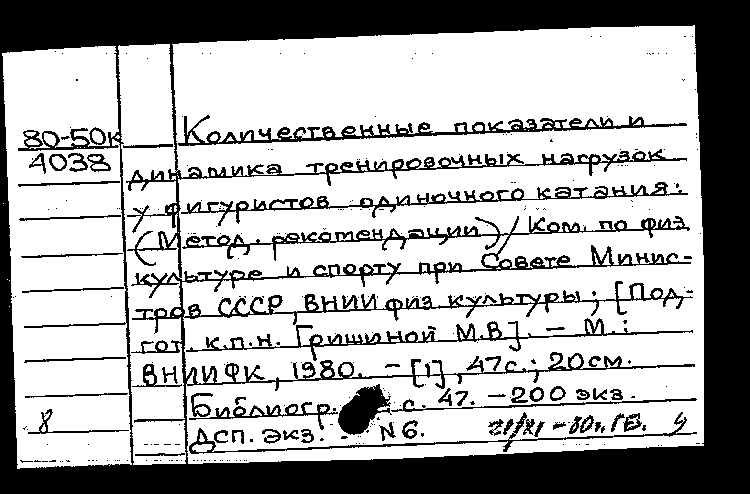 80-50к
4038
Количественные показатели и
динамика тренировочных нагрузок
у фигуристов одиночного катания:
(Метод. рекомендации) / Ком. по физ
культуре и спорту при Совете Минис-
тров СССР, ВНИИ физ культуры; [Под-
гот. к.п.н. Гришиной М.В]. - М.:
ВНИИФК, 1980. - [1], 47с.; 20см.
Библиогр. с. 47. - 200 экз.
8 Дсп. экз. N6. 21/XI - 80г. ГВ.